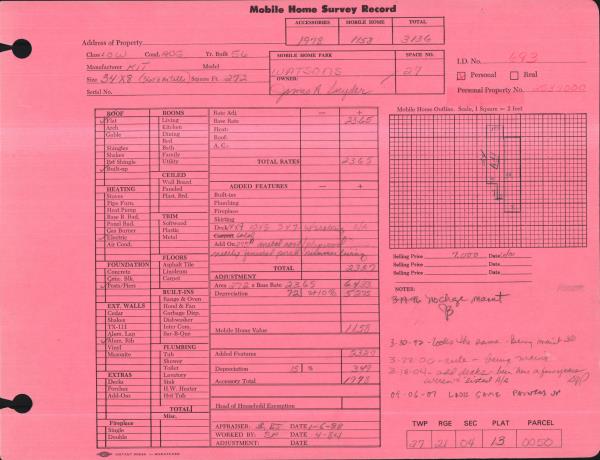 Mobile Home Survey Record
ACCESSORIES MOBILE HOME TOTAL
1978 1158 3136
Address of Property
Class LOW Cond. AVG Yr. Built 56
Manufacturer KIT Model
Size 34X8 Square Ft. 272
Serial No.
MOBILE HOME PARK SPACE NO.
WATSONS 27
OWNER:
James R Snyder
I.D. No. 693
Personal Real
Personal Property No.
ROOF
Flat
Arch
Gable
Shingles
Shakes
Built-up
HEATING
Stoves
Pipe Furn.
Heat Pump
Base B. Rad.
Panel Rad.
Gas Burner
Electric
Air Cond.
FOUNDATION
Concrete
Conc. Blk.
Posts/Piers
EXT. WALLS
Cedar
Shakes
TX-111
Alum. Lap
Alum. Rib
Vinyl
Masonite
EXTRAS
Decks
Porches
Add-Ons
Fireplace
Single
Double
ROOMS
Living
Kitchen
Dining
Bed
Bath
Family
Utility
CEILED
Wall Board
Paneled
Plast. Brd.
TRIM
Softwood
Plastic
Metal
FLOORS
Asphalt Tile
Linoleum
Carpet
BUILT-INS
Range & Oven
Hood & Fan
Garbage Disp.
Dishwasher
Inter Com.
Bar-B-Que
PLUMBING
Tub
Shower
Toilet
Lavatory
Sink
H.W. Heater
Hot Tub
TOTAL
Misc.
Rate Adj. — +
Base Rate 2365
Heat:
Roof:
A. C.:
TOTAL RATES 2365
ADDED FEATURES — +
Built-ins
Plumbing
Fireplace
Skirting
Deck
Add On
TOTAL
ADJUSTMENT
Area 272 x Base Rate 2365 6433
Depreciation 72 5275
Mobile Home Value 1158
Added Features 2327
Depreciation 15 % 349
Accessory Total 1978
Head of Household Exemption
APPRAISER: DATE 1-6-88
WORKED BY: DATE
ADJUSTMENT: DATE
Mobile Home Outline. Scale, 1 Square = 2 feet
Selling Price 7,000 Date
Selling Price Date
Selling Price Date
NOTES:
No Chge maint
3-30-92 - looks the same - being maint
3-22-00 - being maint
3-18-04 - add decks - been here a few years
09-06-07 LOOKS SAME
TWP RGE SEC PLAT PARCEL
27 21 04 13 0050